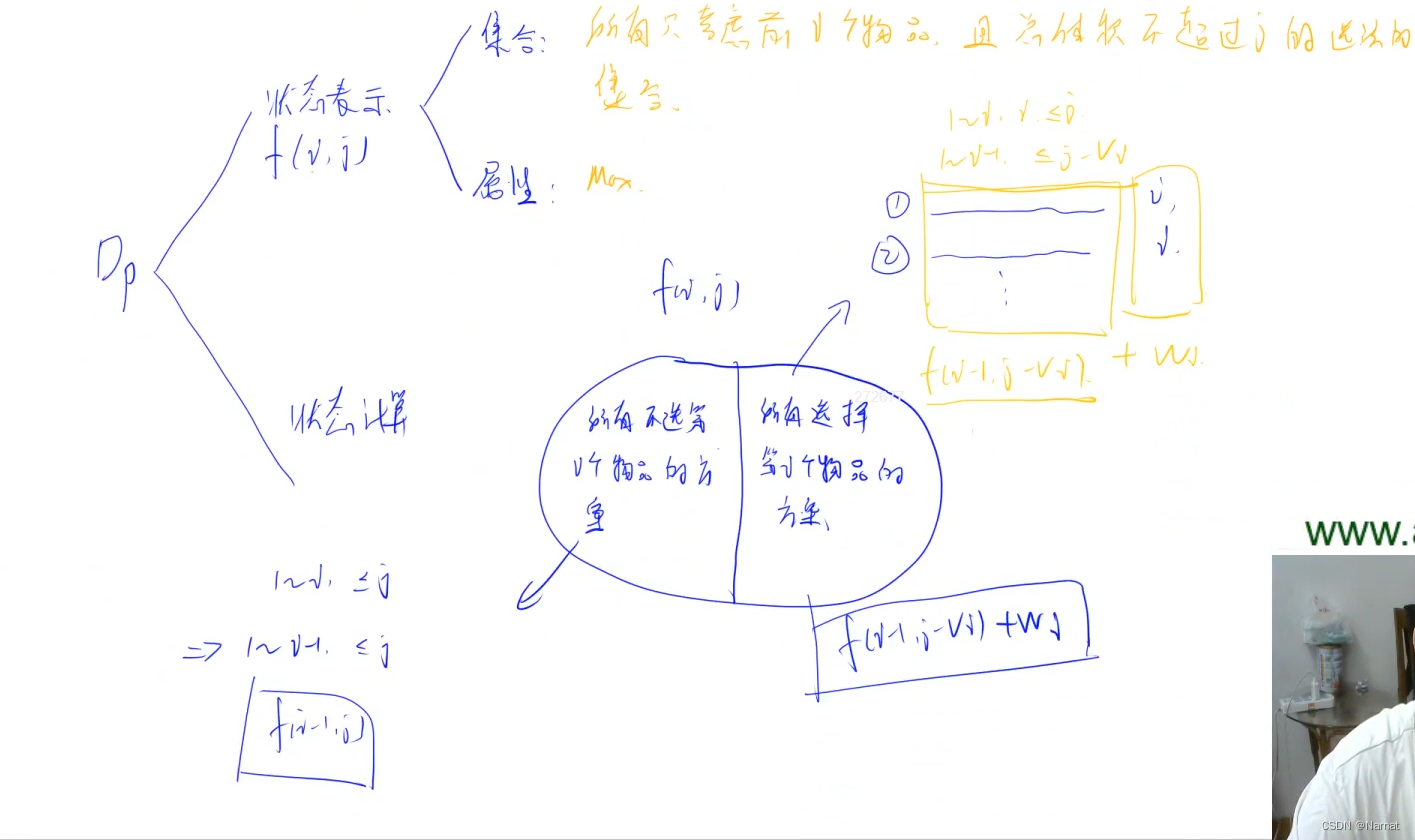 集合: 所有只考虑前i个物品、且总体积不超过j的选法的
集合、
状态表示
f(i,j)
属性: Max.
Dp
状态计算
1~i, i. ≤j
1~i-1. ≤j-Vi
①
②
⋮
i,
i.
f(i-1,j-Vi). + Wi.
f(i,j)
272677
所有不选第
i个物品的方
案
所有选择
第i个物品的
方案、
1~i. ≤j
⇒ 1~i-1. ≤j
f(i-1,j)
f(i-1,j-Vi)+Wi
www.a
CSDN @Narnat